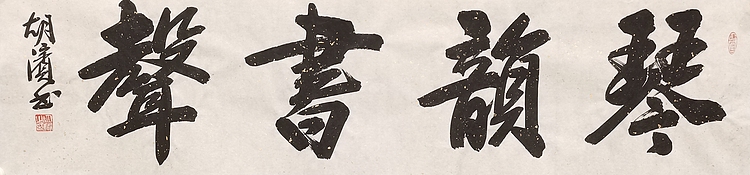 琴韻書聲
胡濱書